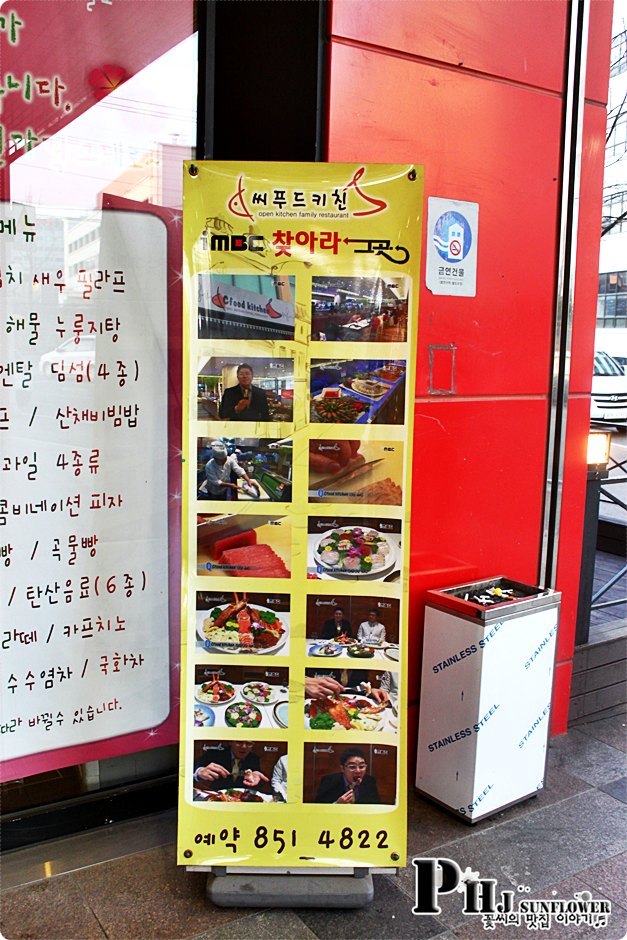 가
니다.
메뉴
새우 필라프
해물 누룽지탕
엔탈 딤섬(4종)
프 / 산채비빔밥
과일 4종류
콤비네이션 피자
빵 / 곡물빵
/ 탄산음료(6종)
라떼 / 카프치노
수수염차 / 국화차
따라 바뀔수 있습니다.
씨푸드키친
open kitchen family restaurant
iMBC 찾아라 그곳
Cfood kitchen
예약 851 4822
금연건물
STAINLESS STEEL
STAINLESS STEEL
STAINLESS STEEL
STAINLESS STEEL
PHJ SUNFLOWER
꽃씨의 맛집 이야기♬